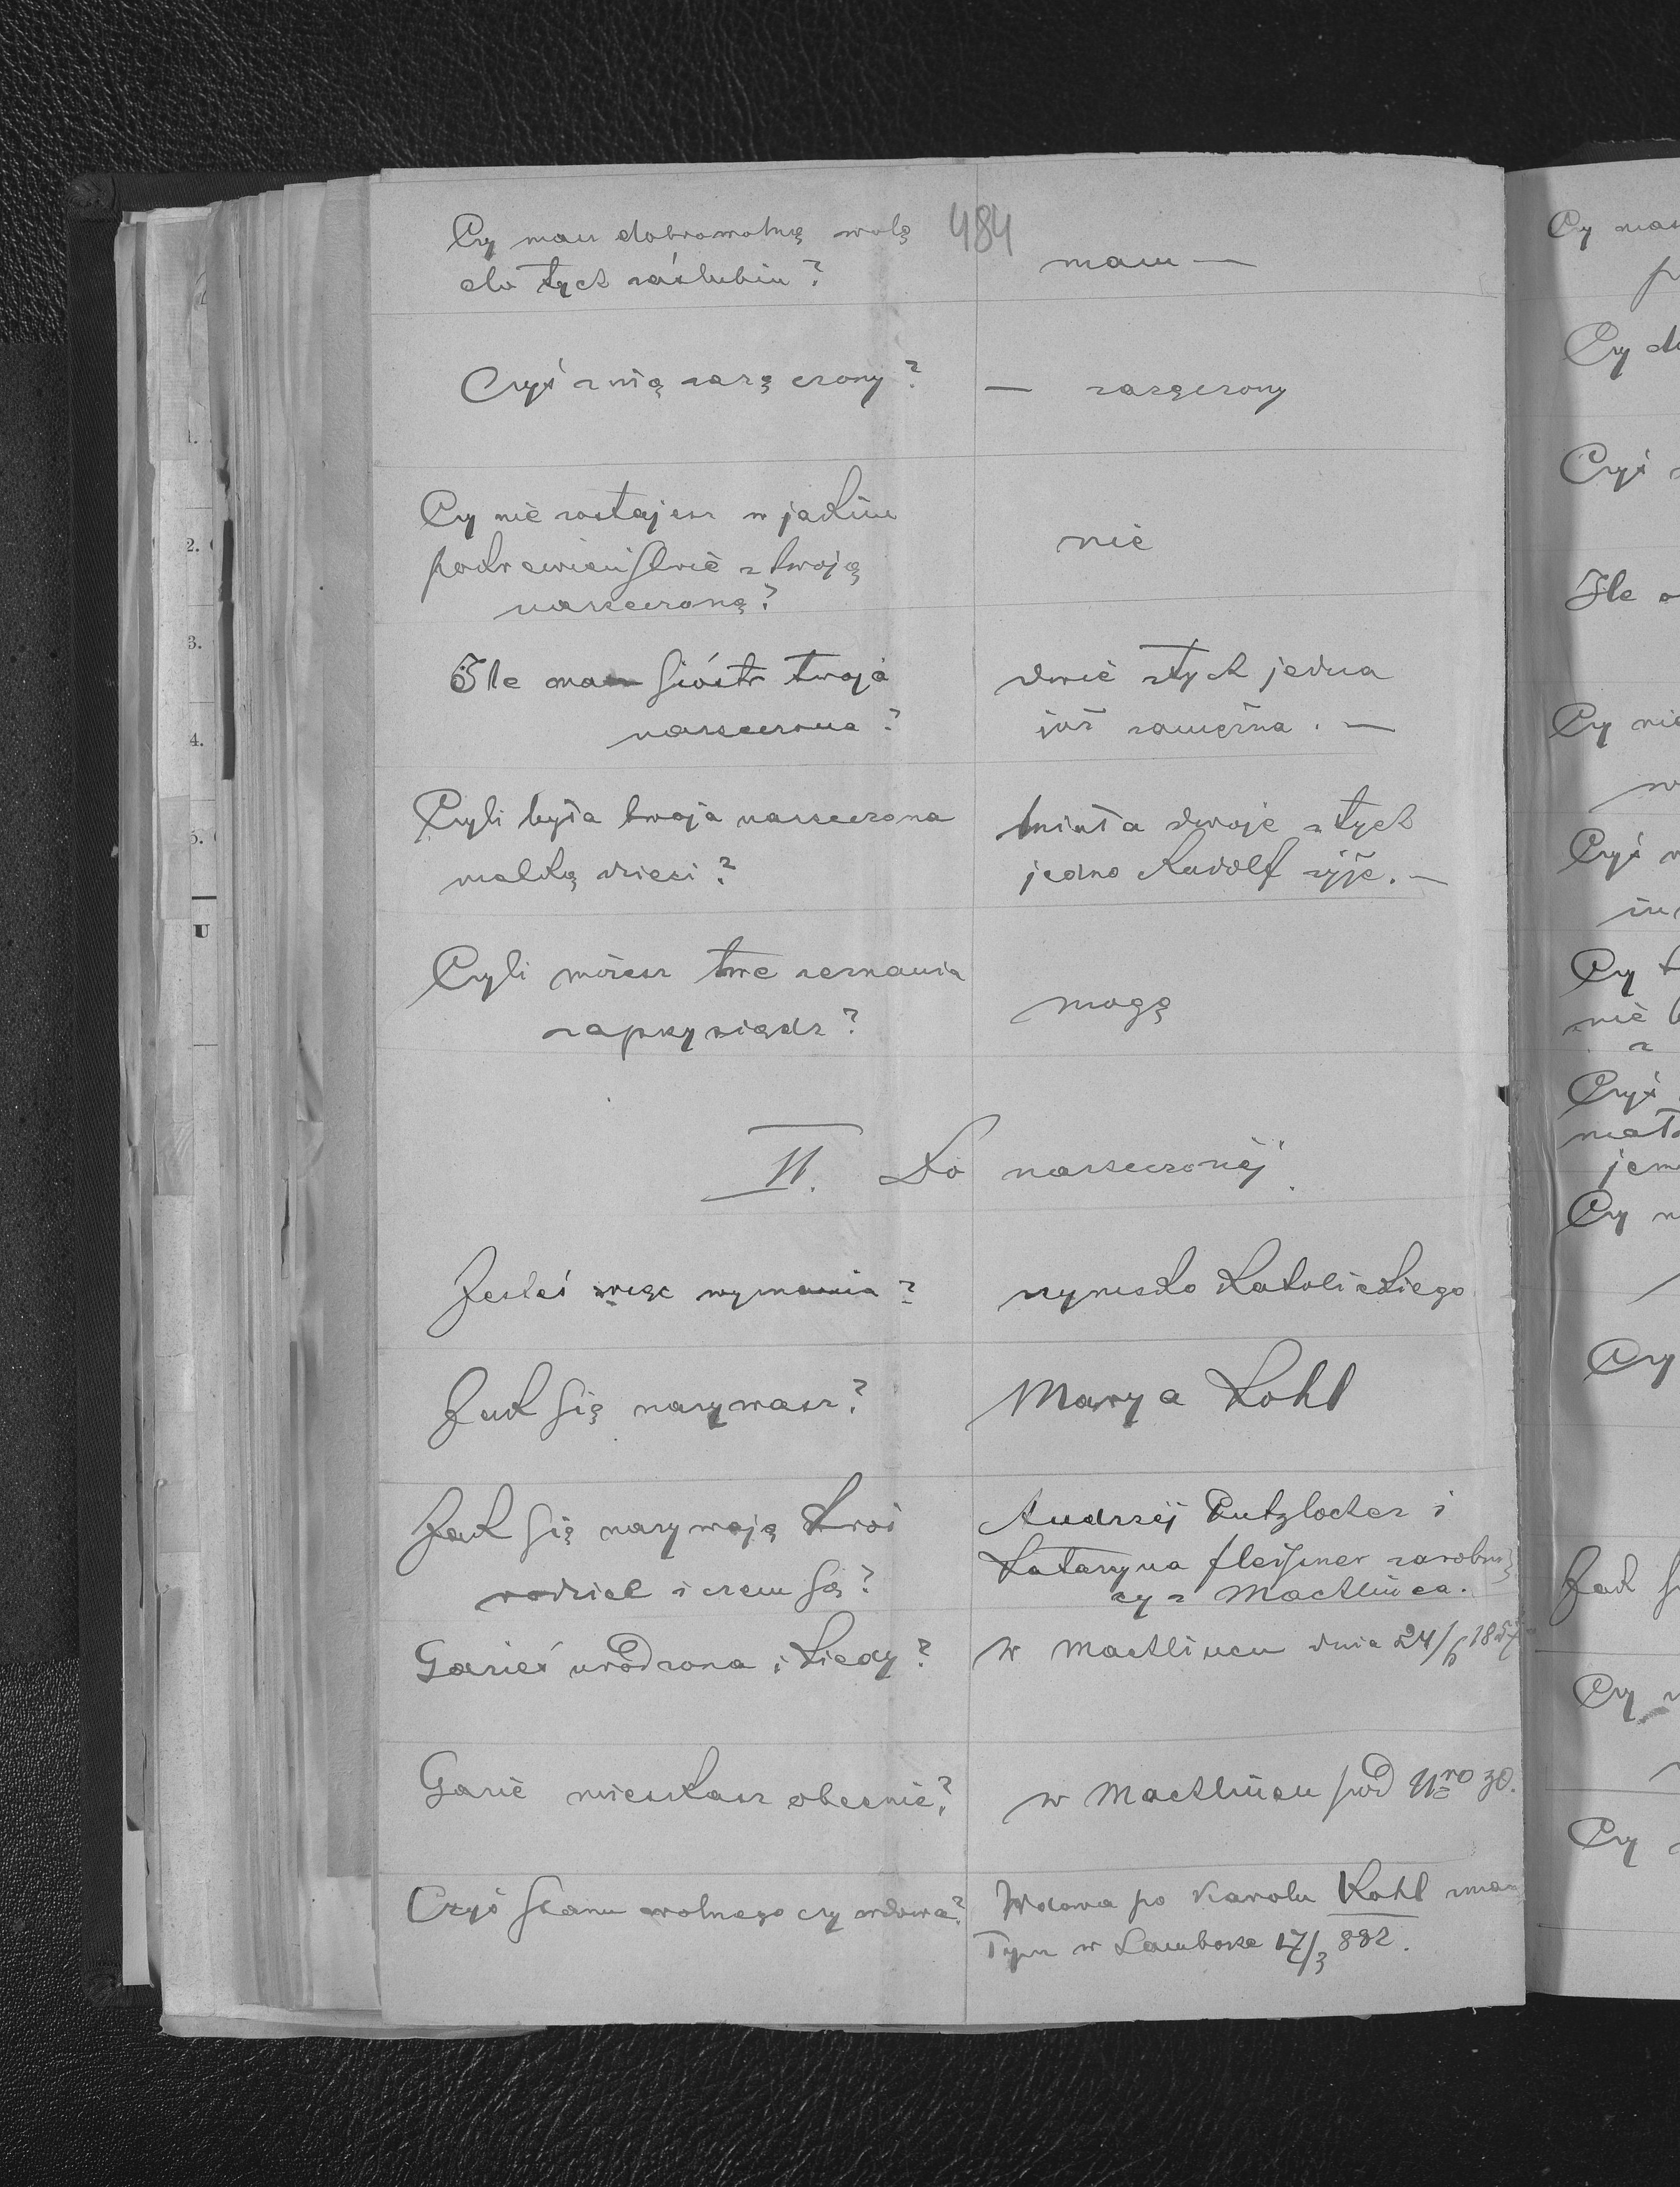 484
Czy masz dobrowolną wolę
do tych zaślubin?
mam —
Czyś z nią zaręczony?
— zaręczony
Czy nie zostajesz w jakim
pokrewieństwie z twoją
narzeczoną?
nie
Ile ma sióstr twoja
narzeczona?
dwie z tych jedna
już zamężna. —
Czyli była twoja narzeczona
matką dzieci?
miała dwoje z tych
jedno Rudolf żyje. —
Czyli możesz twe zeznania
zaprzysiądz?
mogę
II. Do narzeczonéj.
Jesteś więc wyznania?
rzymsko Katolickiego
Jak się nazywasz?
Marya Kohl
Jak się nazywają twoi
rodzice i czem są?
Andrzej Putzlocher i
Katarzyna Fleissner zarobni
cy z Machlińca.
Gdzieś urodzona i kiedy?
w Machlińcu dnia 24/6 1857
Gdzie mieszkasz obecnie?
w Machlińcu pod Nro 30.
Czyś stanu wolnego czy wdowa?
Wdowa po Karolu Kohl zmar
łym w Samborze 17/3 882.
Czy
Czy
Czyś
Ile
Czy nie
Czyś
Czy
nie
z
Czyś
Czy
Czy
Jak
Czy
Czy
1.
2.
3.
4.
5.
U